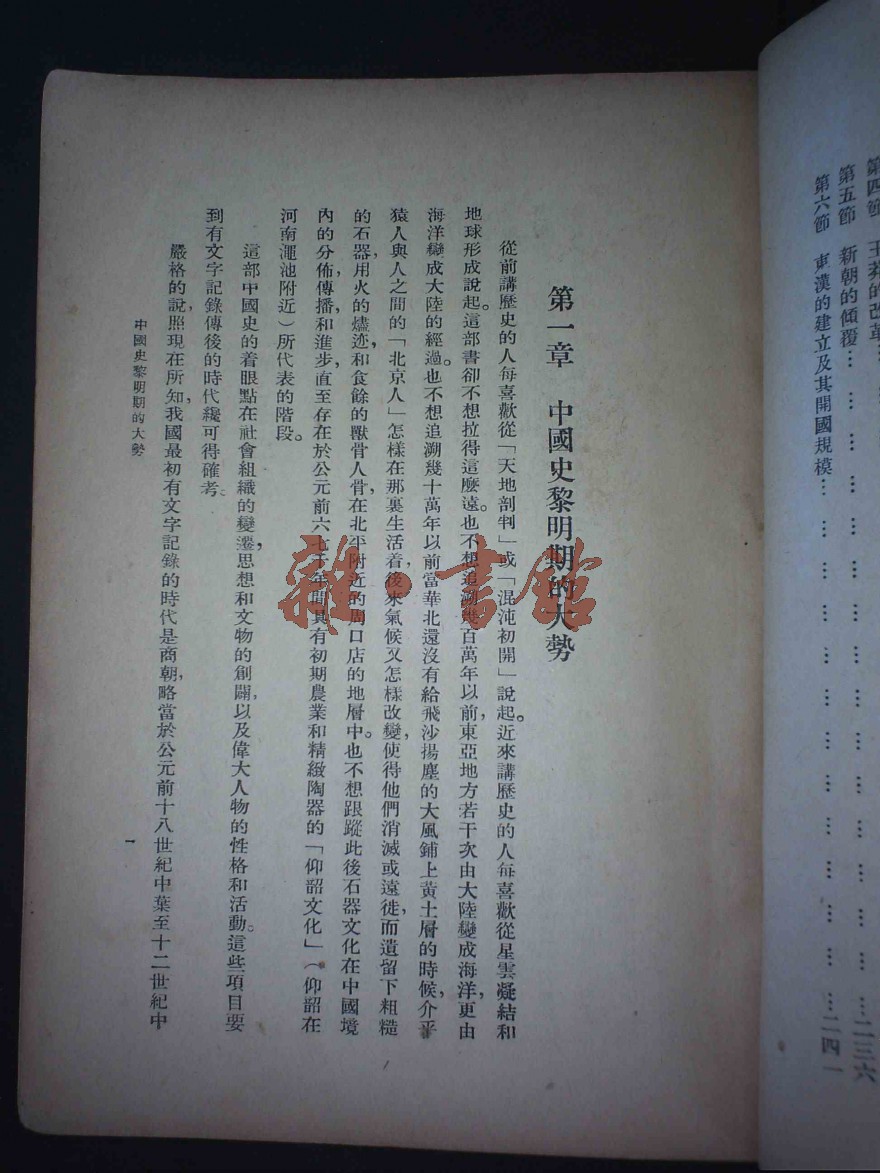 第四節 王莽的改革
第五節 新朝的傾覆… … … … … … … … … …二三六
第六節 東漢的建立及其開國規模… … … … … … … …二四一
第一章 中國史黎明期的大勢
從前講歷史的人每喜歡從「天地剖判」或「混沌初開」說起。近來講歷史的人每喜歡從星雲凝結和
地球形成說起。這部書卻不想拉得這麼遠。也不想追溯幾百萬年以前,東亞地方若干次由大陸變成海洋,更由
海洋變成大陸的經過。也不想追溯幾十萬年以前當華北還沒有給飛沙揚塵的大風鋪上黃土層的時候,介乎
猿人與人之間的「北京人」怎樣在那裏生活着,後來氣候又怎樣改變,使得他們消滅或遠徙,而遺留下粗糙
的石器,用火的燼迹,和食餘的獸骨人骨,在北平附近的周口店的地層中。也不想跟蹤此後石器文化在中國境
內的分佈,傳播和進步,直至存在於公元前六七千年間具有初期農業和精緻陶器的「仰韶文化」(仰韶在
河南澠池附近)所代表的階段。
這部中國史的着眼點在社會組織的變遷,思想和文物的創闢,以及偉大人物的性格和活動。這些項目要
到有文字記錄傳後的時代纔可得確考。
嚴格的說,照現在所知,我國最初有文字記錄的時代是商朝,略當於公元前十八世紀中葉至十二世紀中
中國史黎明期的大勢
一
雜·書館